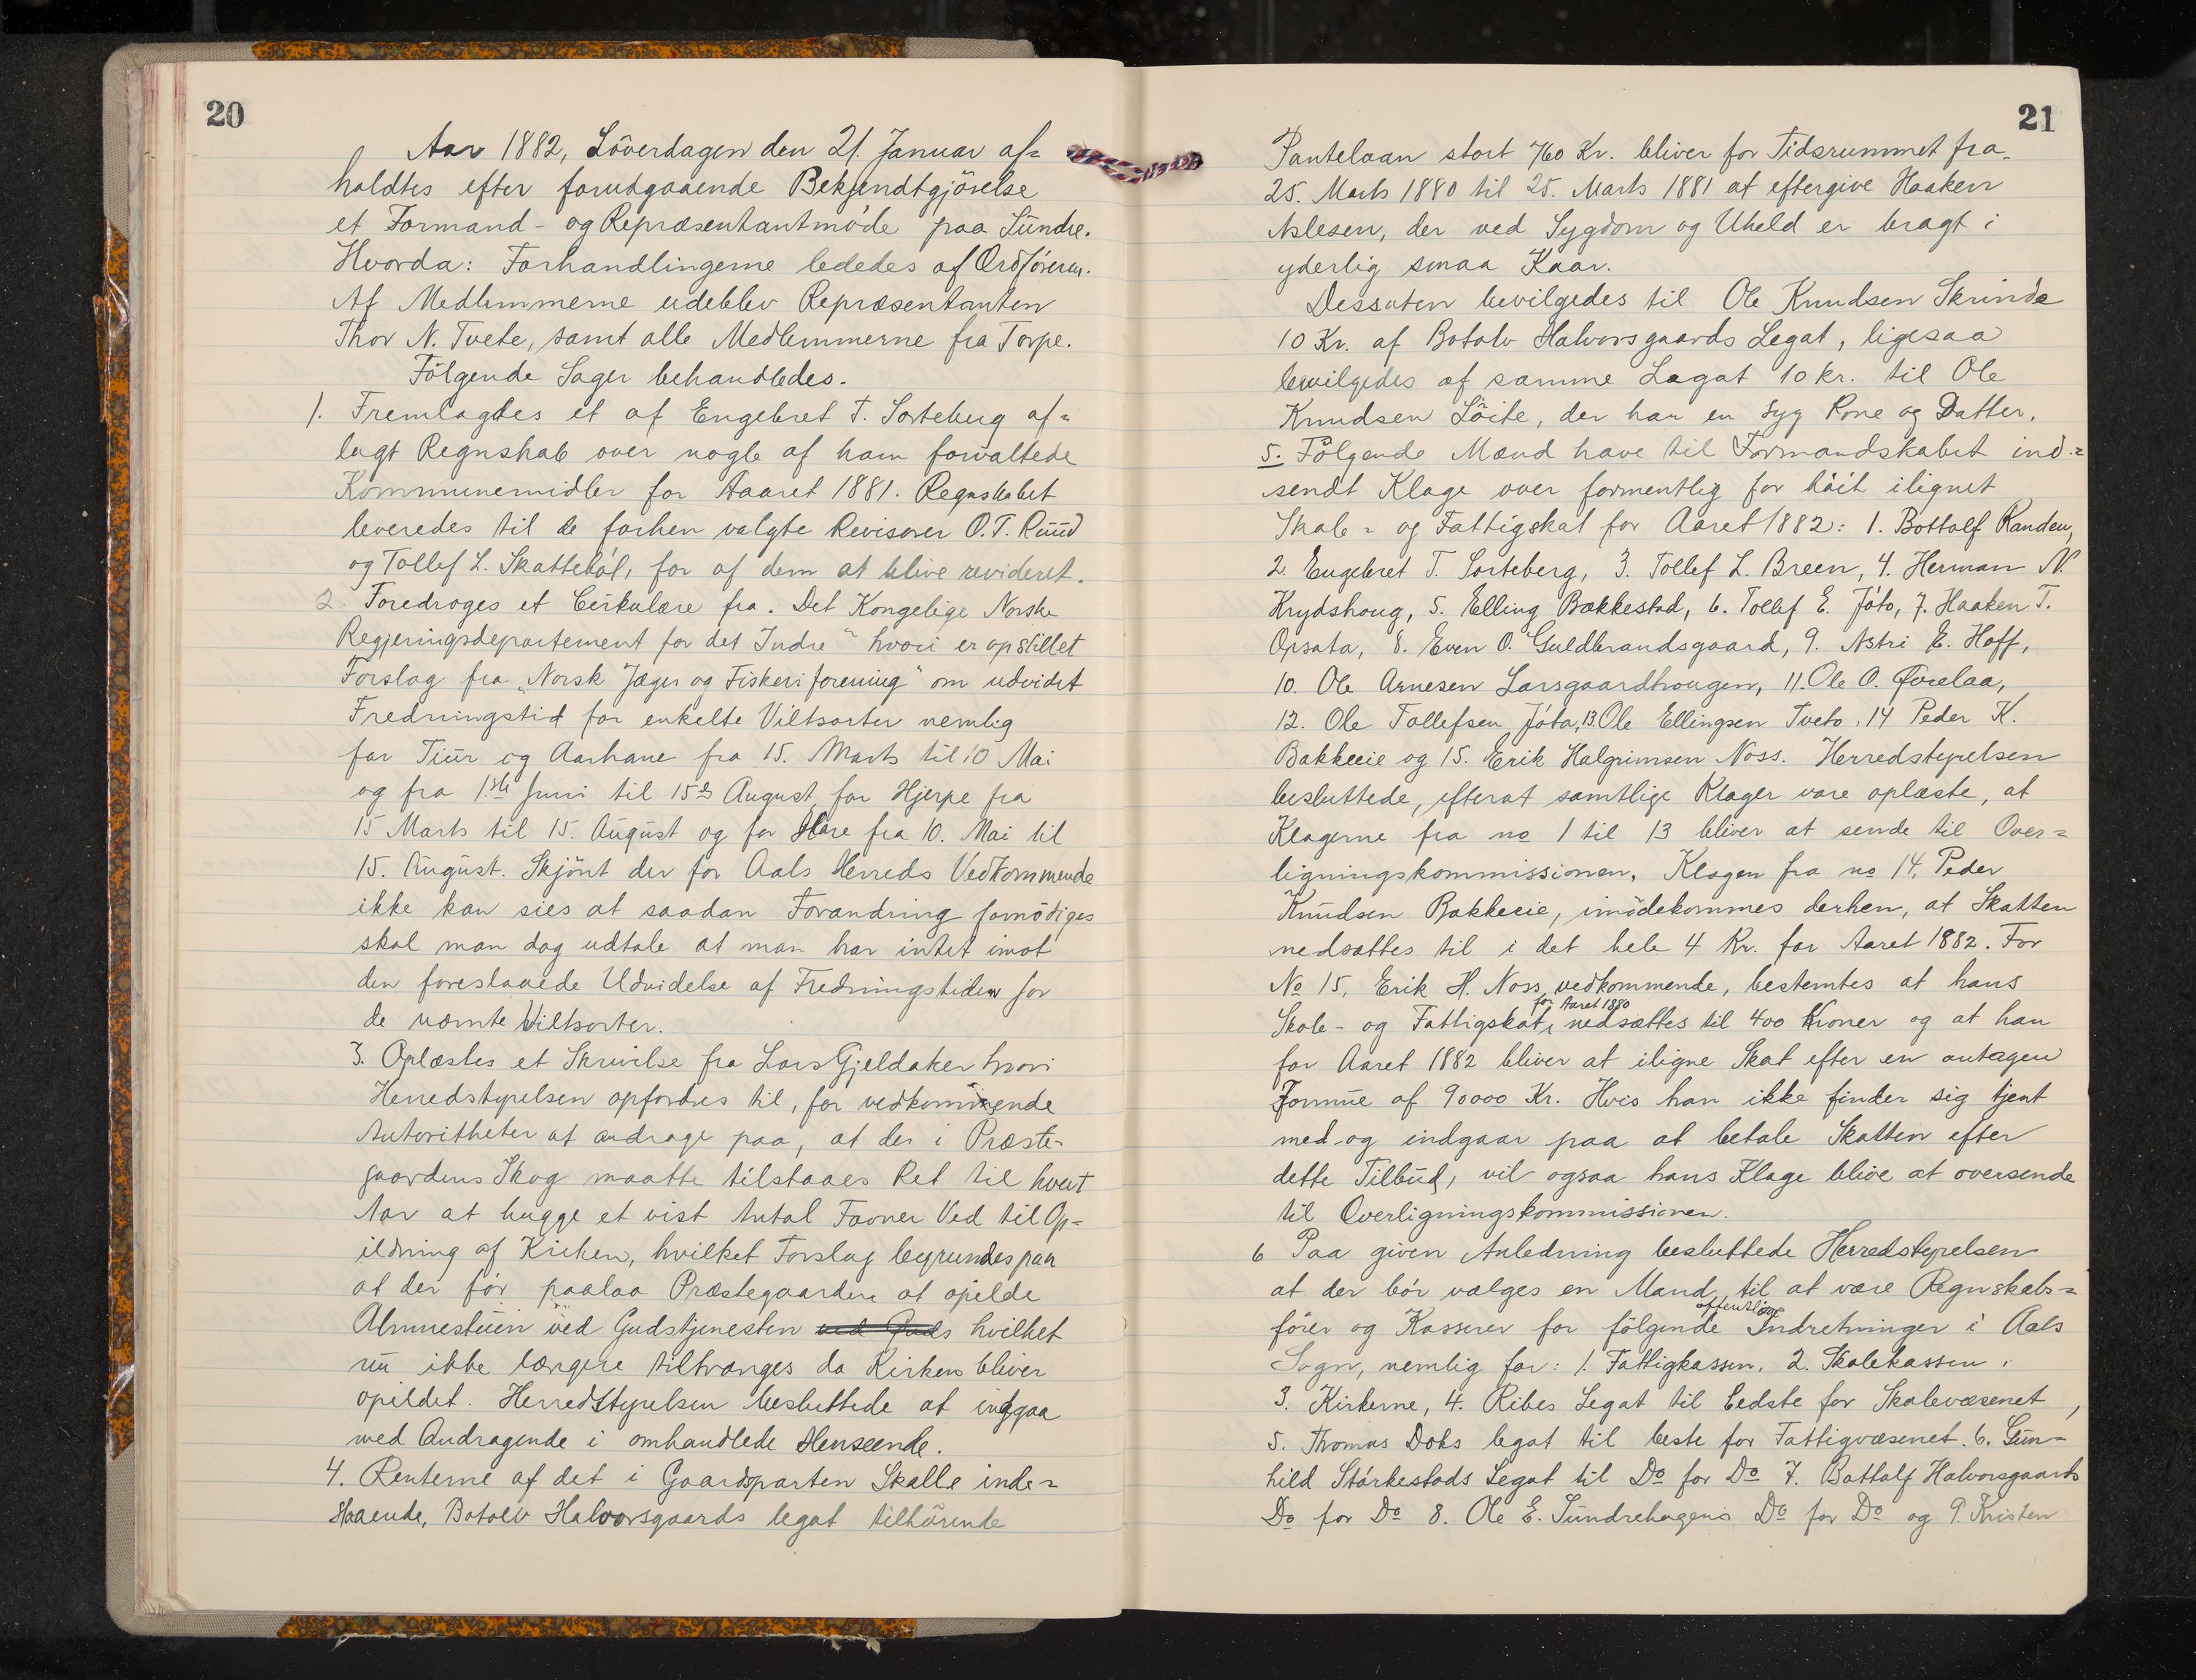 20
Aar 1882, Löverdagen den 21. Januar af=
holdtes efter forudgaaende Bekjendtgjörelse
et Formand- og Repræsentantmöde paa Sundre.
Hvorda: Forhandlingerne lededes af Ordföreren.
Af Medlemmerne udeblev Repræsentanten
Thor N. Tvete, samt alle Medlemmerne fra Torpe.
Fölgende Sager behandledes.
1. Fremlagdes et af Engebret T. Sorteberg af=
lagt Regnskab over nogle af ham forvaltede
Kommunemidler for Aaaret 1881. Regnskabet
leveredes til de forhen valgte Revisorer O.T. Ruud
og Tollef L. Skattebøl, for af dem at blive revideret.
2 Foredroges et Cirkulære fra. Det Kongelige Norske
Regjeringsdepartement for det Indre" hvori er opstillet
Forslag fra „Norsk Jæger og Fiskeriforening" om udvidet
Fredningstid for enkelte Viltsorter nemlig
for Tiur og Aarhane fra 15. Marts til 10 Mai
og fra 1ste Juni til 15de August, for Hjerpe fra
15 Marts til 15. August og for Hare fra 10. Mai til
15. August. Skjönt der for Aals Herreds Vedkommende
ikke kan sies at saadan Forandring fornödiges
skal man dog udtale at man har intet imot
den foreslaaede Udvidelse af Fredningstiden for
de nævnte Viltsorter.
3. Oplæstes et Skrivelse fra Lars Gjeldaker hvori
Herredstyrelsen opfordres til, for vedkommende
Autoritheter at andrage paa, at der i Præste-
gaardens Skog maatte tilstaaes Ret til hvert
Aar at hugge et vist Antal Favner Ved til Op=
ildning af Kirken, hvilket Forslag begrundes paa
at der för paalaa Præstegaarden at opilde
Almuestuen ved Gudstjenesten ved Guds hvilket
nu ikke længere tiltrænges da Kirken bliver
opildet. Herredstyrelsen besluttede at indgaa
med Andragende i omhandlede Henseende.
4. Renterne af det i Gaardsparten Skalle inde=
staaende, Botolv Halvorsgaards legat tilhörende
21
Pantelaan stort 760 Kr. bliver for Tidsrummet fra
25. Marts 1880 til 25. Marts 1881 at eftergive Haaken
Aslesen, der ved Sygdom og Uheld er bragt i
yderlig smaa Kaar.
Dessuten bevilgedes til Ole Knudsen Skrinde
10 Kr. af Botolv Halvorsgaards Legat, ligesaa
bevilgedes af samme Legat 10 kr. til Ole
Knudsen Löite, der har en syg Kone og Datter.
5. Følgende Mænd have til Formandskabet ind=
sendt Klage over formentlig for höit ilignet
Skole= og Fattigskat for Aaret 1882: 1. Bottolf Randen,
2. Engebret T. Sorteberg, 3. Tollef L. Breen, 4. Herman N.
Krydshoug, 5. Elling Bakkestad, 6. Tollef E. Jóto, 7. Haaken T.
Opsata, 8. Even O. Guldbrandsgaard, 9. Astri E. Hoff,
10. Ole Arnesen Larsgaardhougen, 11. Ole O. Qvelaa,
12. Ole Tollefsen Jóto, 13. Ole Ellingsen Tveto, 14 Peder K.
Bakkeeie og 15. Erik Halgrimsen Noss. Herredstyrelsen
besluttede, efterat samtlige Klager vare oplæste, at
Klagerne fra no 1 til 13 bliver at sende til Over=
ligningskommissionen, Klagen fra no 14, Peder
Knudsen Bakkeeie, imödekommes derhen, at Skatten
nedsættes til i det hele 4 Kr. for Aaret 1882. For
No 15, Erik H. Noss vedkommende, bestemtes at hans
for Aaret 1880
Skole- og Fattigskat, nedsættes til 400 Kroner og at han
for Aaret 1882 bliver at iligne Skat efter en antagen
Formue af 90000 Kr. Hvis han ikke finder sig tjent
med og indgaar paa at betale Skatten efter
dette Tilbud, vil ogsaa hans Klage blive at oversende
til Overligningskommissionen.
6 Paa given Anledning besluttede Herredstyrelsen
at der bór vælges en Mand til at være Regnskabs=
offentlige
förer og Kasserer for fölgende Indretninger i Aals
Sogn, nemlig for: 1. Fattigkassen, 2. Skolekassen,
3. Kirkerne, 4. Ribes Legat til bedste for Skolevæsenet,
5. Thomas Doks legat til beste for Fattigvæsenet. 6. Gun=
hild Stárkestads Legat til Do for Do 7. Bottolf Halvorsgaards
Do for Do 8. Ole E. Sundrehagens Do for Do og 9. Kristen